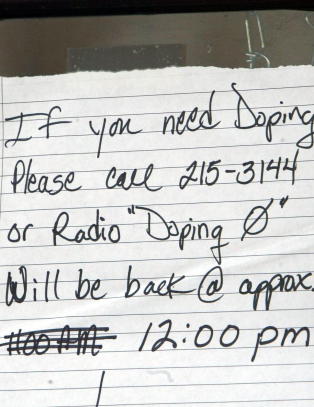 If you need Doping
Please call 215-3144
or Radio "Doping Ø"
Will be back @ approx.
11:00 AM 12:00 pm